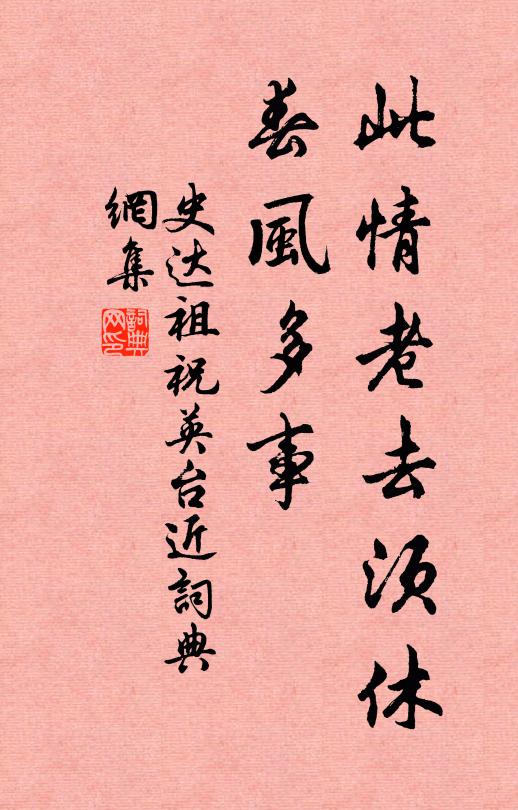 此情老去須休
春風多事
史达祖祝英台近詞典
網集
詞典
网印